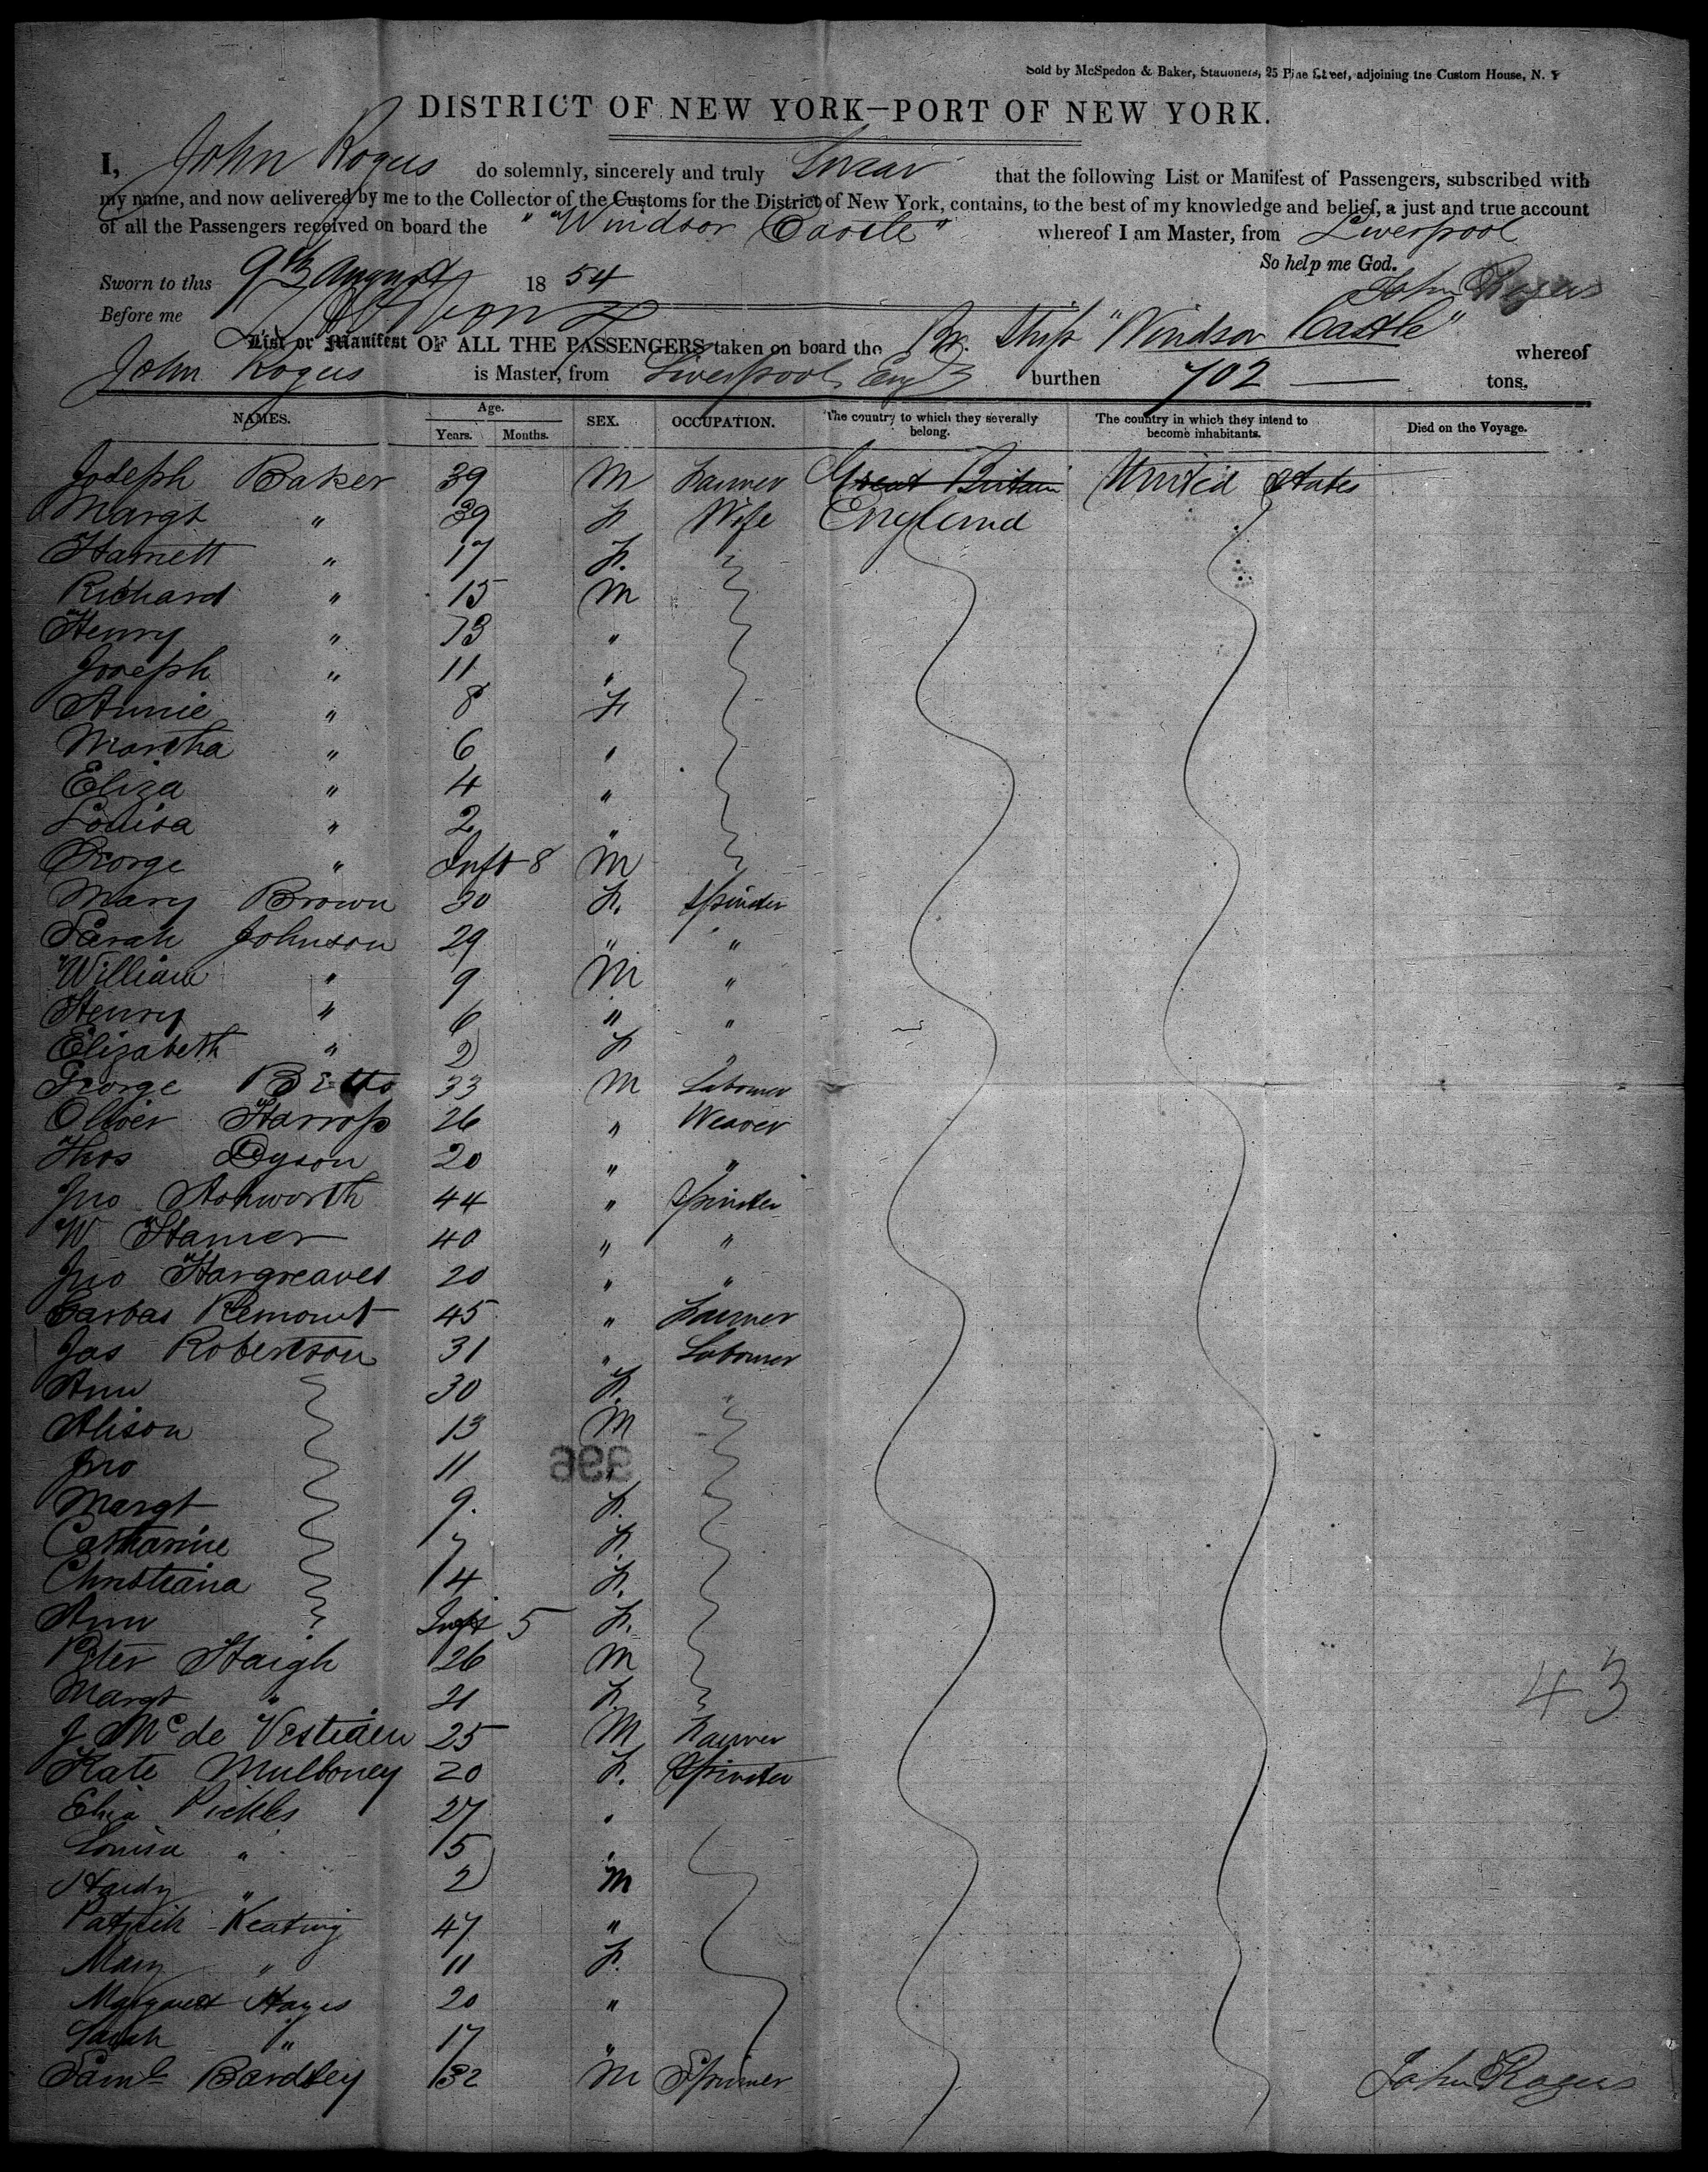 Sold by McSpedon & Baker, Stationers, 25 Pine Street, adjoining the Custom House, N. Y
DISTRICT OF NEW YORK—PORT OF NEW YORK.
I, John Rogers do solemnly, sincerely and truly Swear that the following List or Manifest of Passengers, subscribed with
my name, and now delivered by me to the Collector of the Customs for the District of New York, contains, to the best of my knowledge and belief, a just and true account
of all the Passengers received on board the "Windsor Castle" whereof I am Master, from Liverpool
So help me God.
Sworn to this 9th August 1854 John Rogers
Before me
List or Manifest OF ALL THE PASSENGERS taken on board the Br. Ship "Windsor Castle" whereof
John Rogers is Master, from Liverpool, Eng burthen 702 tons.
NAMES. Age. Years. Months. SEX. OCCUPATION. The country to which they severally belong. The country in which they intend to become inhabitants. Died on the Voyage.
Joseph Baker 39 M Farmer Great Britain United States
Margt " 39 F Wife England
Harriett " 17 F.
Richard " 15 M
Henry " 13 "
Joseph " 11 "
Annie " 8 F
Martha " 6 "
Eliza " 4 "
Louisa " 2 "
George " Inft 8 M
Mary Brown 30 F. Spinster
Sarah Johnson 29 " "
William " 9 M "
Henry " 6 " "
Elizabeth " 2 F
George Betts 33 M Labourer
Oliver Harrop 26 " Weaver
Thos Dyson 20 " "
Jno Ashworth 44 " Spinster
W Hamer 40 " "
Jno Hargreaves 20 " "
45 " Farmer
Jas Robertson 31 " Labourer
Ann 30 F. "
Alison 13 M
Jno 11 "
996
Margt 9. F.
Catharine 7 F.
Christiana 4 F.
Ann Inft 5 F.
Peter Haigh 26 M
Margt " 21 F.
J Mc de 25 M Farmer
Kate Mulloney 20 F. Spinster
Eliza Pickles 27 "
Louisa " 5 "
Hardy " 2 M
Patrick Keating 47 "
Mary " 11 F.
Margaret Hayes 20 "
Sarah " 17 "
Saml Bardsley 32 M Spinner
43
John Rogers